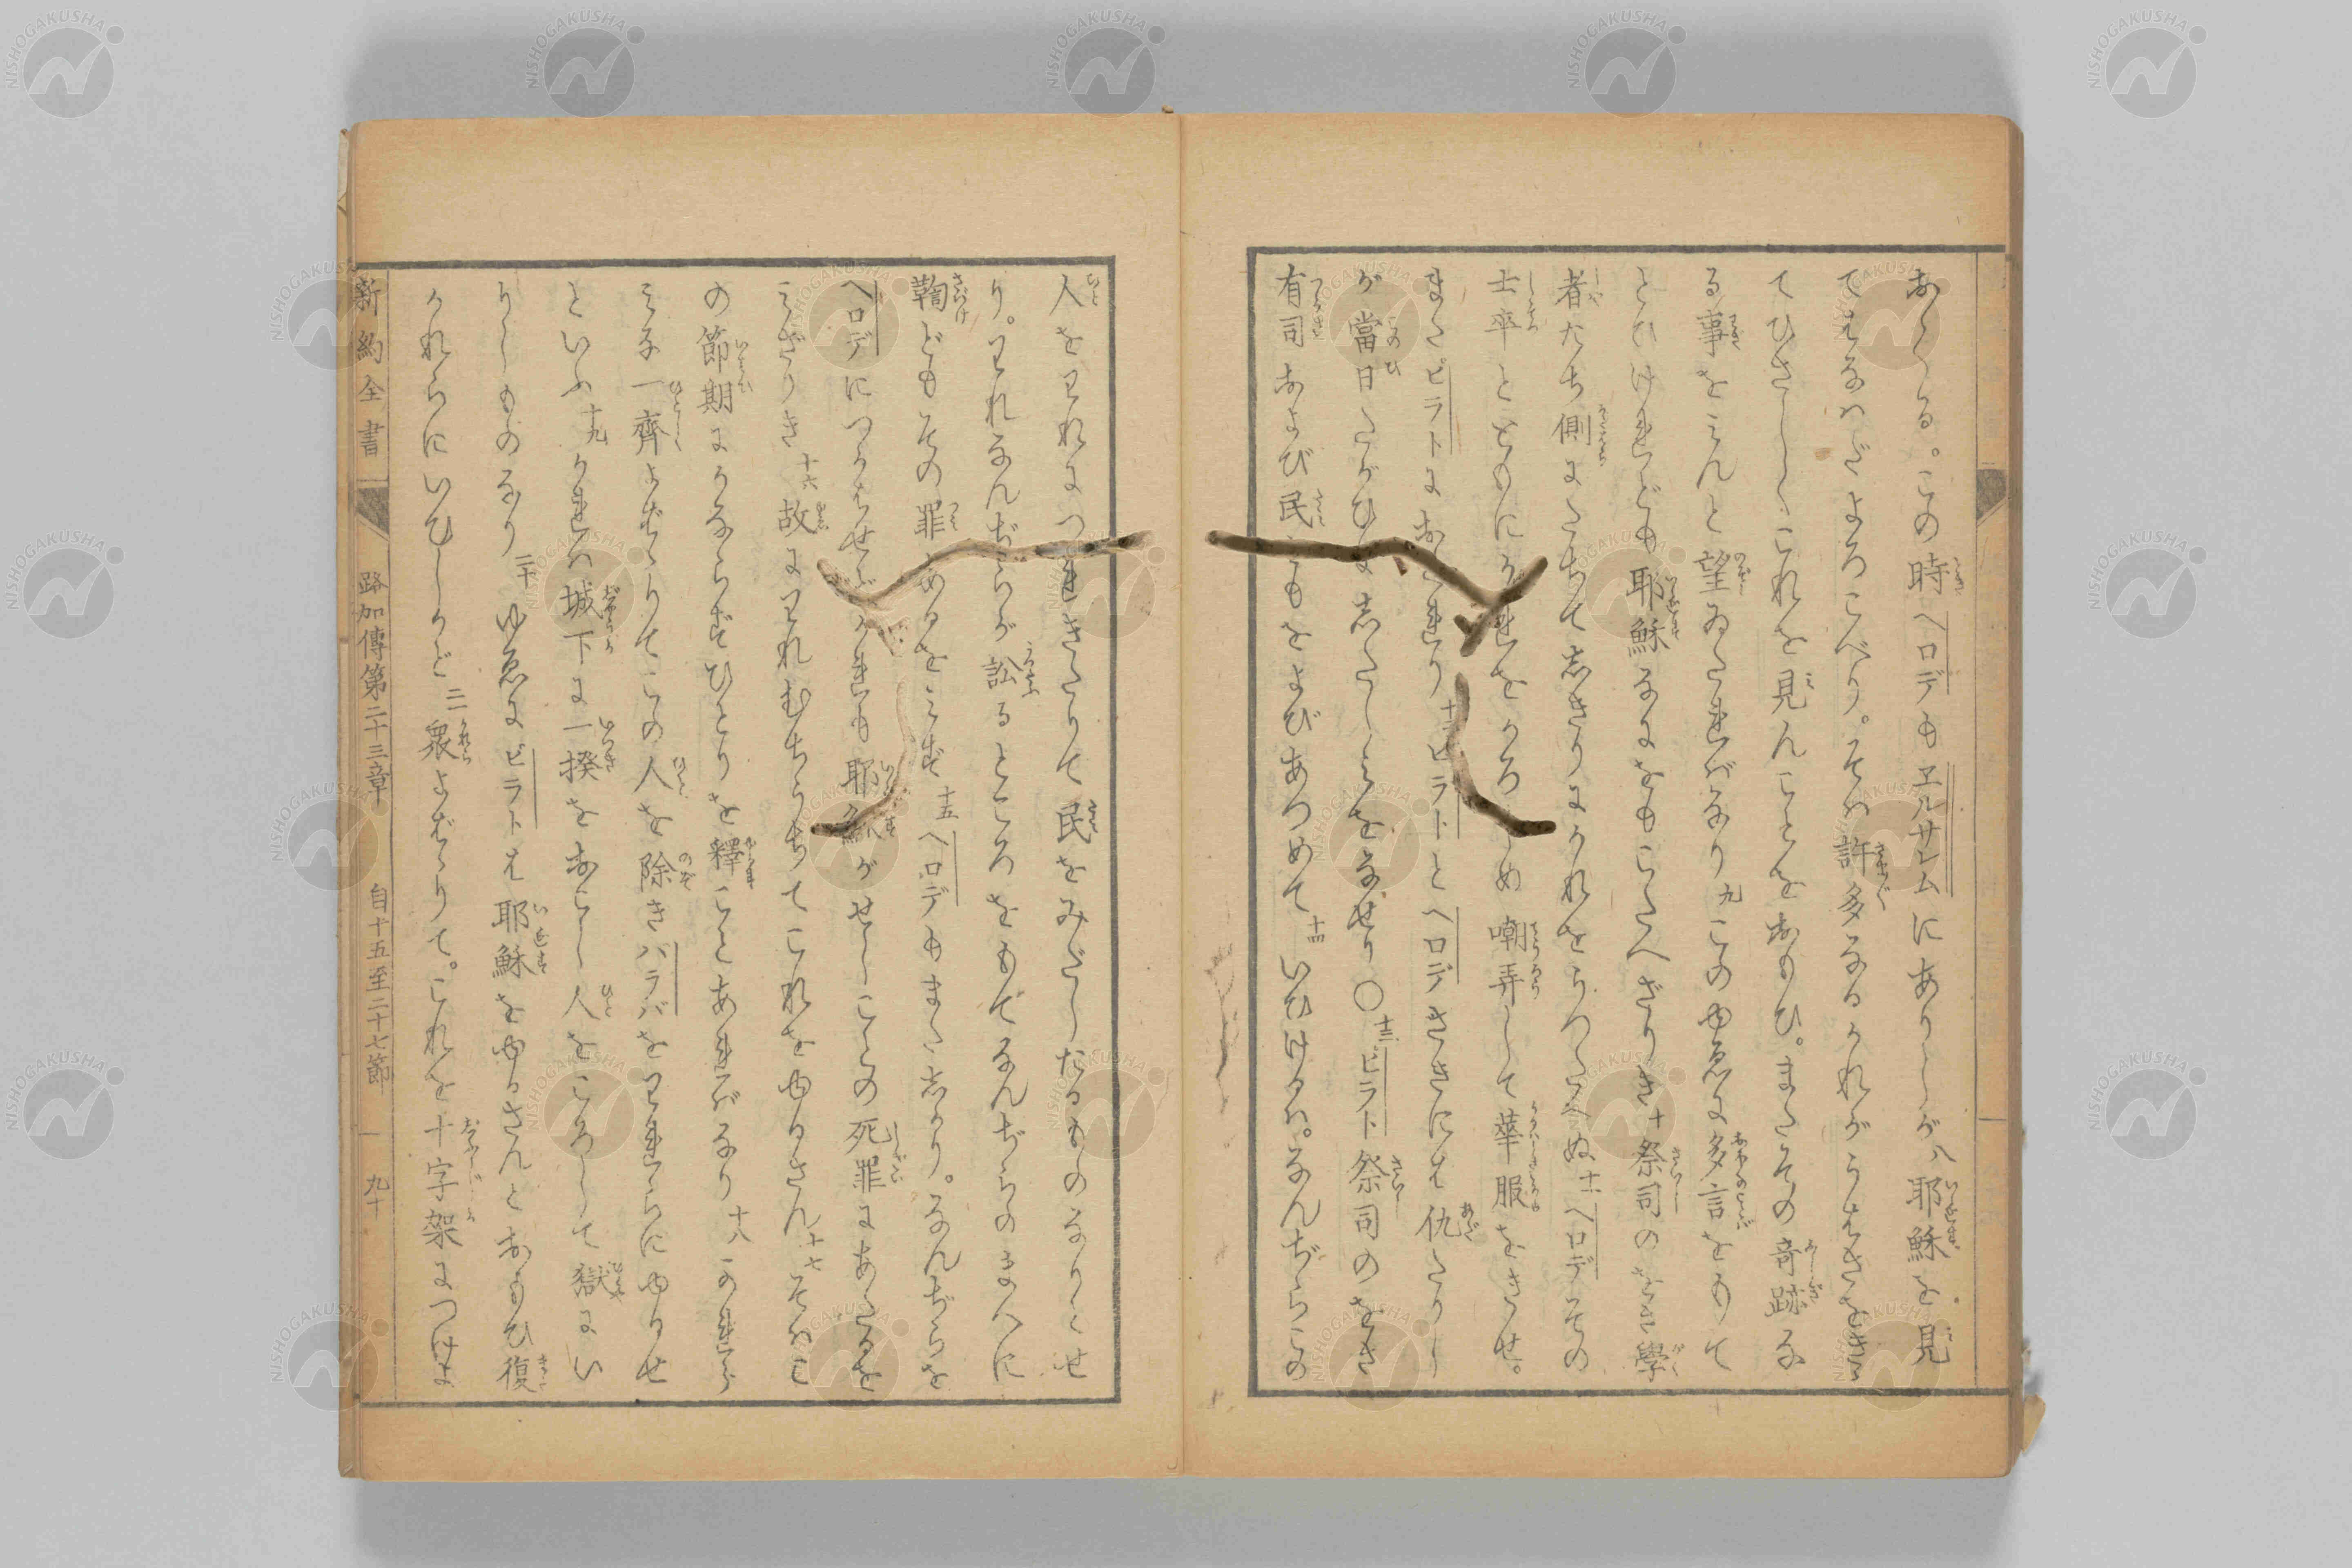 おくる。この時ヘロデもヱルサレムにありしが八耶穌を見
てはなはだよろこべり。そは許多なるかれがうはさをきゝ
てひさしくこれを見んことをおもひ。またその奇跡な
る事をみんと望ゐたればなり九このゆゑに多言をもて
とひけれども耶穌なにをもこたへざりき十祭司のをさ學
者たち側にたちて志きりにかれをうつたへぬ十一ヘロデその
士卒とともにかれをかろしめ嘲弄して華服をきせ。
またピラトにおくれり十二ピラトとヘロデさきには仇たりし
が當日たがひに志たしみをなせり〇十三ピラト祭司のをさ
有司および民どもをよびあつめて十四いひけるは。なんぢらこの
人をわれにつれきたりて民をみだしたるものなりとせ
り。われなんぢらが訟るところをもてなんぢらのまへに
鞫どもその罪あるをみず十五ヘロデもまた志かり。なんぢらを
ヘロデにつかはせどかれも耶穌がせしことの死罪にあたるを
みざりき十六故にわれむちうちてこれをゆるさん十七そはこ
の節期にかならずひとりを釋ことあればなり十八かれら
みな一齊よばゝりてこの人を除きバラバをわれらにゆるせ
といふ十九かれは城下に一揆をおこし人をころして獄にい
りしものなり二十ゆゑにピラトは耶穌をゆるさんとおもひ復
かれらにいひしかど二一衆よばゝりて。これを十字架につけよ
新約全書 路加傳第二十三章 自十五至二十七節 九十
NISHOGAKUSHA